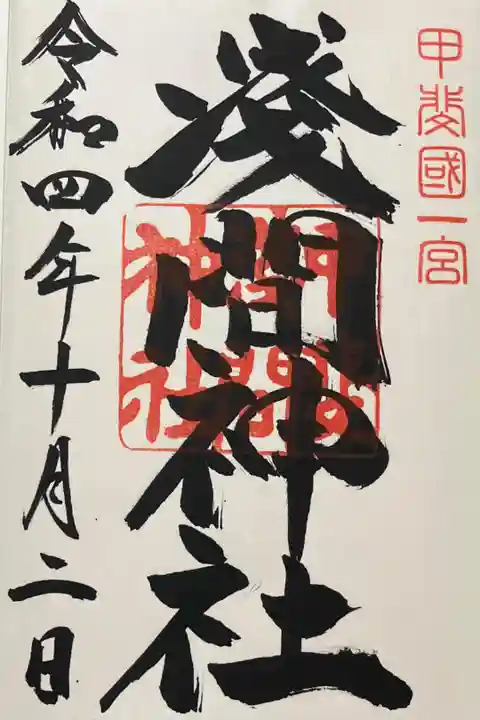 甲斐國一宮
淺間神社
令和四年十月二日